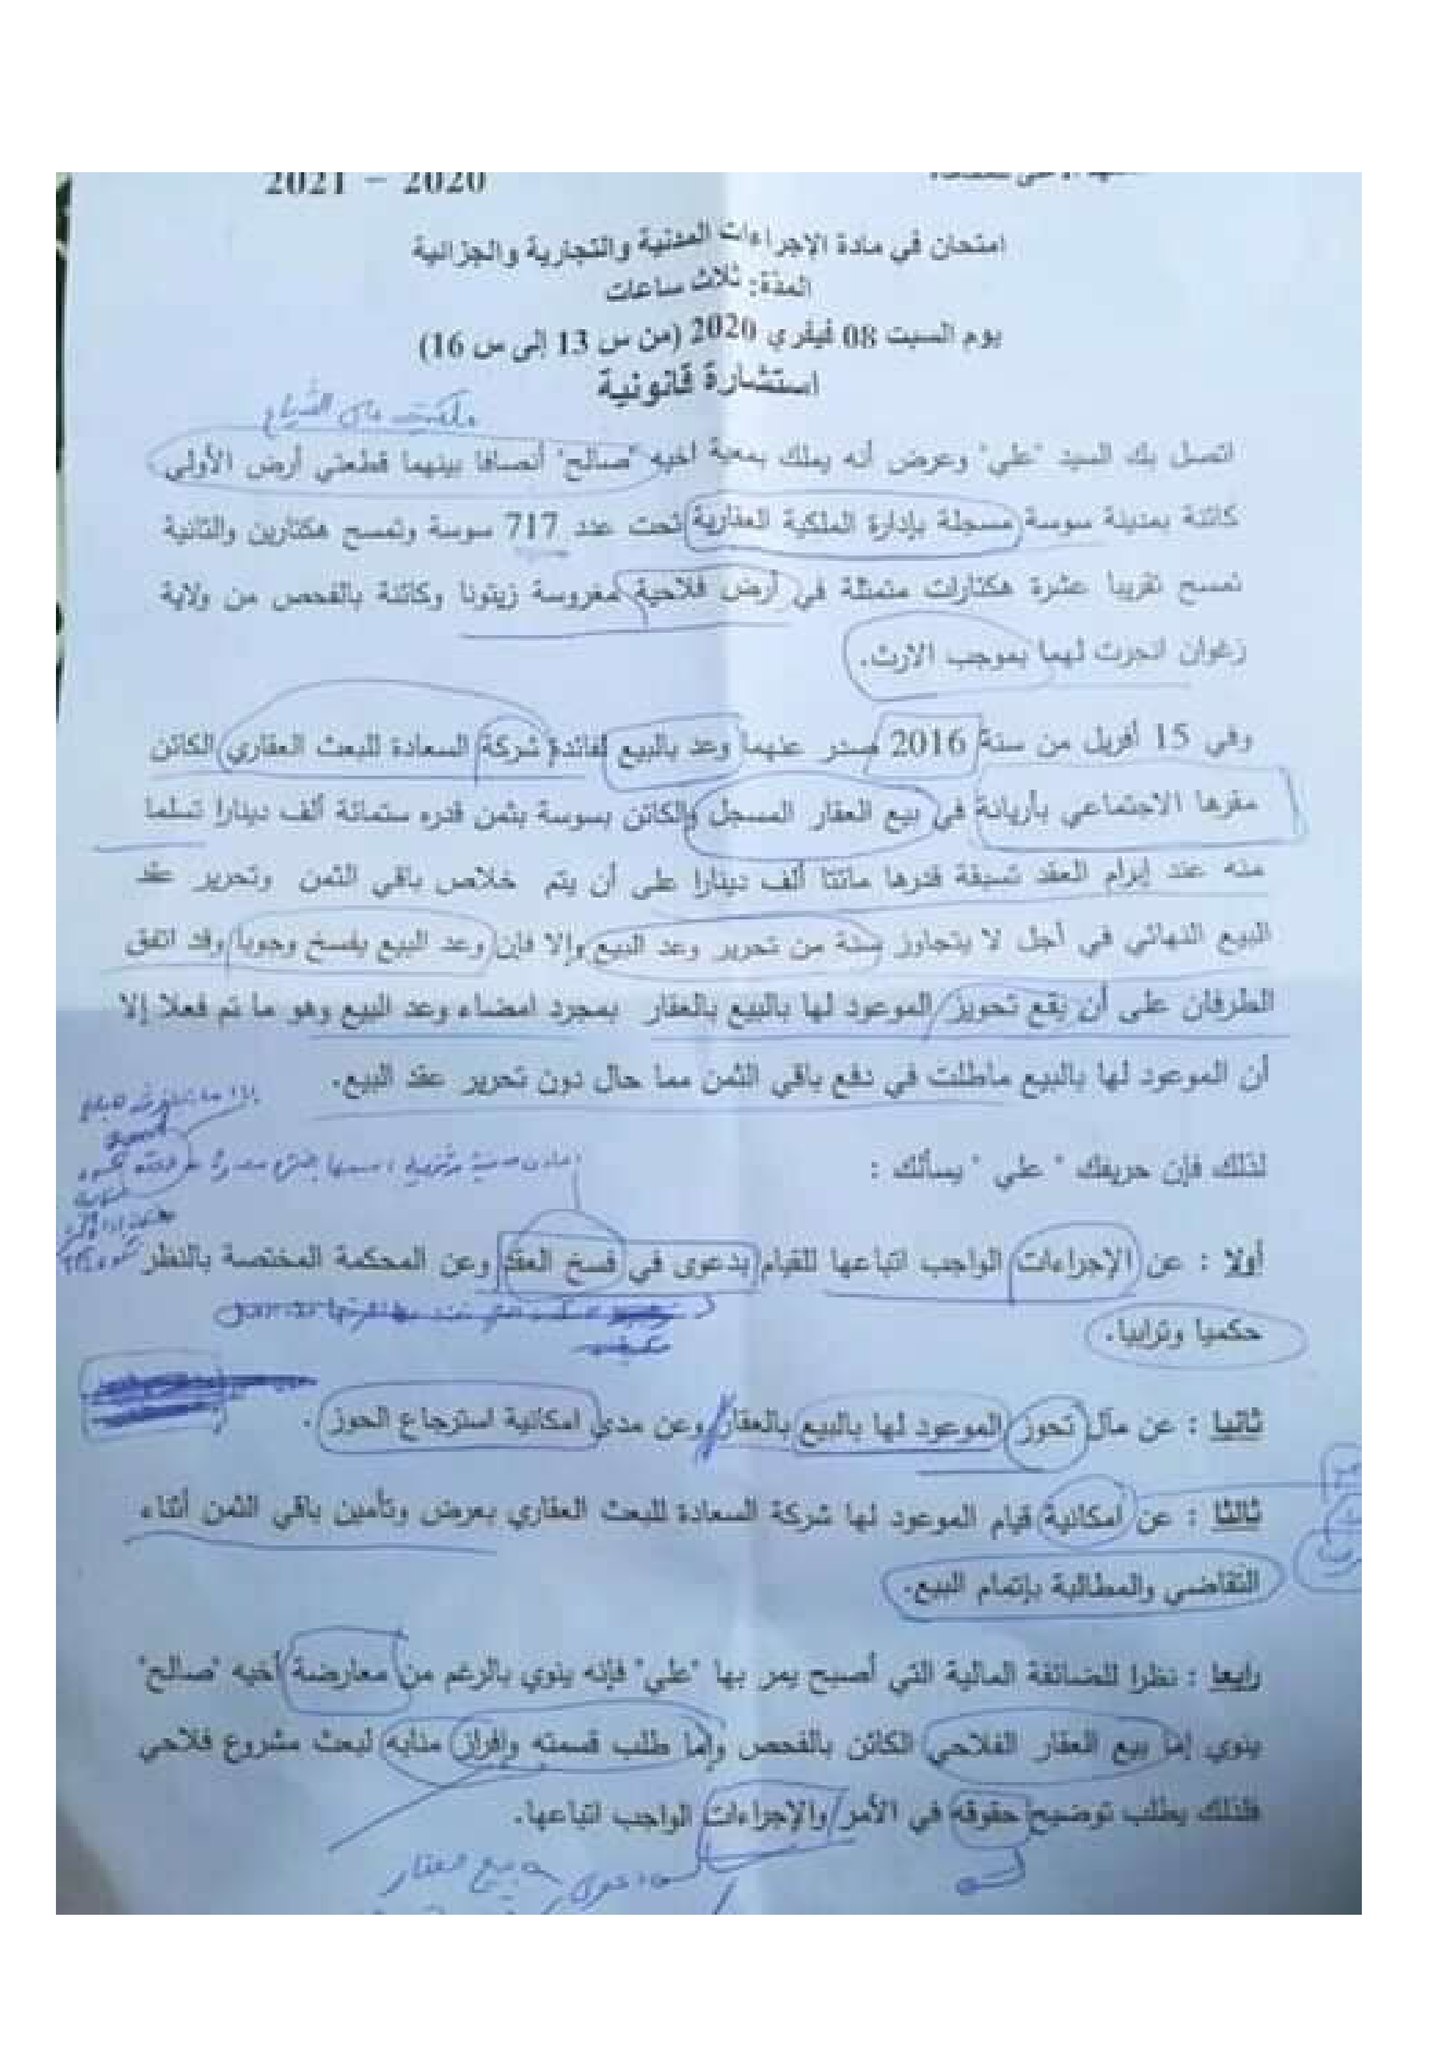 2021 – 2020
امتحان في مادة الإجراءات المدنية والتجارية والجزائية
المدة: ثلاث ساعات
يوم السبت 08 فيفري 2020 (من س 13 إلى س 16)
استشارة قانونية
ملكية على الشياع
اتصل بك السيد "علي" وعرض أنه يملك بمعية اخيه "صالح" أنصافا بينهما قطعتي أرض الأولى
كائنة بمدينة سوسة مسجلة بإدارة الملكية العقارية تحت عدد 717 سوسة وتمسح هكتارين والثانية
تمسح تقريبا عشرة هكتارات متمثلة في أرض فلاحية مغروسة زيتونا وكائنة بالفحص من ولاية
زغوان انجرت لهما بموجب الارث.
وفي 15 أفريل من سنة 2016 صدر عنهما وعد بالبيع لفائدة شركة السعادة للبعث العقاري الكائن
مقرها الاجتماعي بأريانة في بيع العقار المسجل والكائن بسوسة بثمن قدره ستمائة ألف دينارا تسلما
منه عند إبرام العقد تسبقة قدرها مائتا ألف دينارا على أن يتم خلاص باقي الثمن وتحرير عقد
البيع النهائي في أجل لا يتجاوز سنة من تحرير وعد البيع وإلا فإن وعد البيع يفسخ وجوبا وقد اتفق
الطرفان على أن يقع تحويز الموعود لها بالبيع بالعقار بمجرد امضاء وعد البيع وهو ما تم فعلا إلا
أن الموعود لها بالبيع ماطلت في دفع باقي الثمن مما حال دون تحرير عقد البيع.
لذلك فإن حريفك " علي " يسألك :
أولا : عن الإجراءات الواجب اتباعها للقيام بدعوى في فسخ العقد وعن المحكمة المختصة بالنظر
حكميا وترابيا.
ثانيا : عن مآل تحوز الموعود لها بالبيع بالعقار وعن مدى امكانية استرجاع الحوز .
ثالثا : عن امكانية قيام الموعود لها شركة السعادة للبعث العقاري بعرض وتأمين باقي الثمن أثناء
التقاضي والمطالبة بإتمام البيع.
رابعا : نظرا للضائقة المالية التي أصبح يمر بها "علي" فإنه ينوي بالرغم من معارضة أخيه "صالح"
ينوي إما بيع العقار الفلاحي الكائن بالفحص وإما طلب قسمته وإفراز منابه لبعث مشروع فلاحي
فلذلك يطلب توضيح حقوقه في الأمر والإجراءات الواجب اتباعها.
بيع العقار